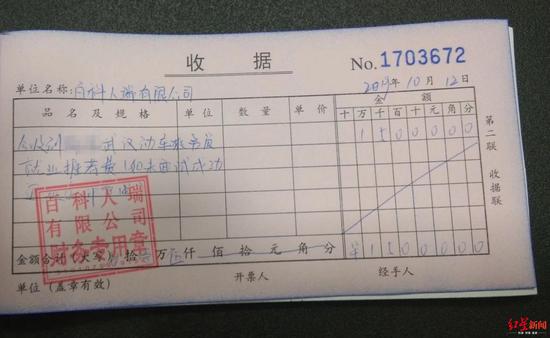 收 据
No. 1703672
单位名称: 百科人瑞有限公司
2019年10月12日
品名及规格 单位 数量 单价 金额
十万千百十元角分
今收到 武汉动车乘务员 1500000
就业推荐费180天面试成功
百科人瑞
有限公司
财务专用章
金额合计(大写) 拾壹万伍仟 佰 拾 元 角 分 ¥1500000
单位(盖章有效) 开票人 经手人
第二联 收据联
红星新闻